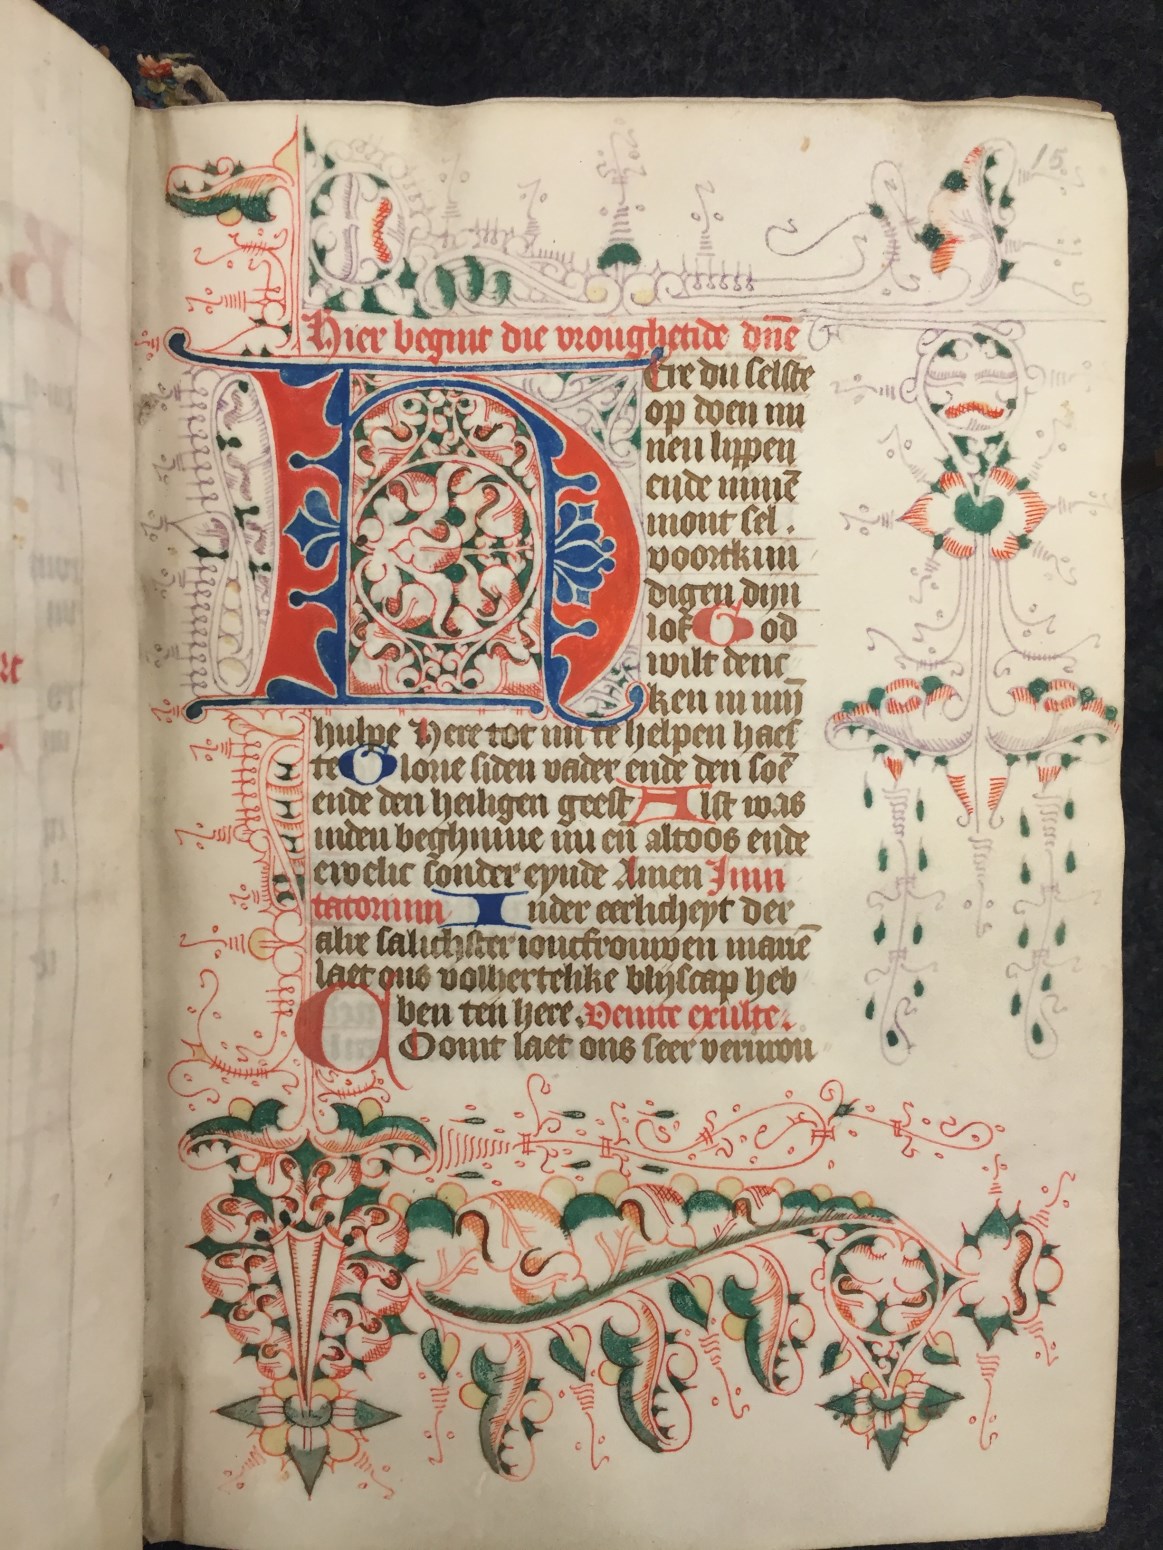 15
Hier begint die vroughetide onē
H Ere du selste
op doen mi
nen lippen
ende minē
mont sel .
voortkun
digen dijn
lof God
wilt denc
ken in mij
hulpe Here tot mi te helpen haes
te Glorie siden vader ende den soē
ende den heiligen geest Alst was
inden beghinne nu eñ altoos ende
ewelic sonder eynde Amen Inui
tatorium Inder eerlicheyt der
alre salichster ioncfrouwen mariē
laet ons volhertelike blyscap heb
ben ten here. Venite exulte.
Coomt laet ons seer verurou